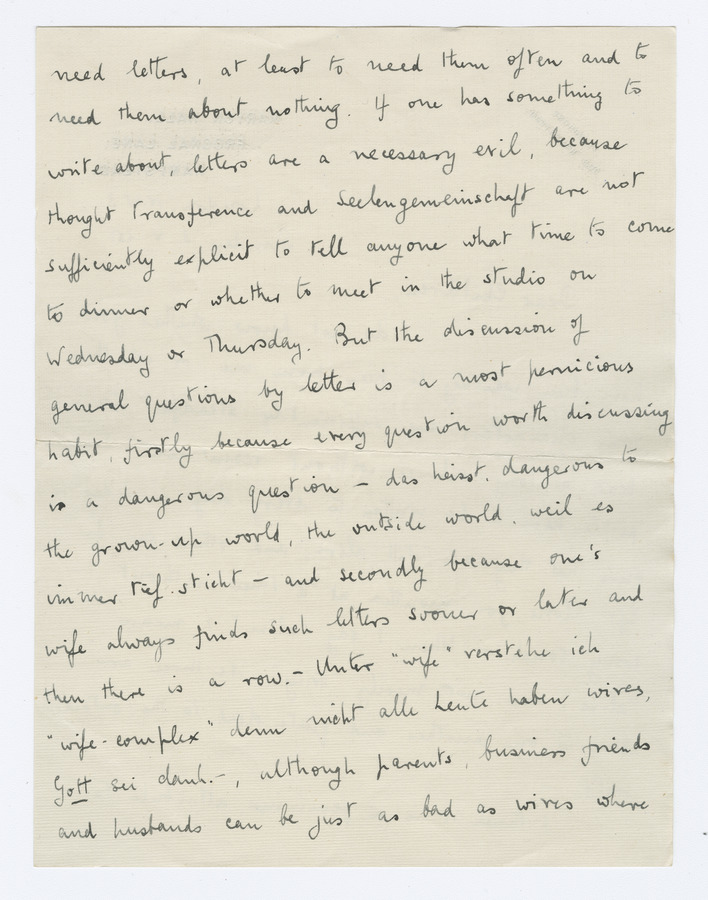 need letters, at least to need them often and to
need them about nothing. If one has something to
write about, letters are a necessary evil, because
thought transference and Seelengemeinschaft are not
sufficiently explicit to tell anyone what time to come
to dinner or whether to meet in the studio on
Wednesday or Thursday. But the discussion of
general questions by letter is a most pernicious
habit, firstly because every question worth discussing
is a dangerous question – das heisst, dangerous to
the grown-up world, the outside world, weil es
immer tief sticht – and secondly because one's
wife always finds such letters sooner or later and
then there is a row. – Unter "wife" verstehe ich
"wife-complex" denn nicht alle Leute haben wives,
Gott sei dank. –, although parents, business friends
and husbands can be just as bad as wives where